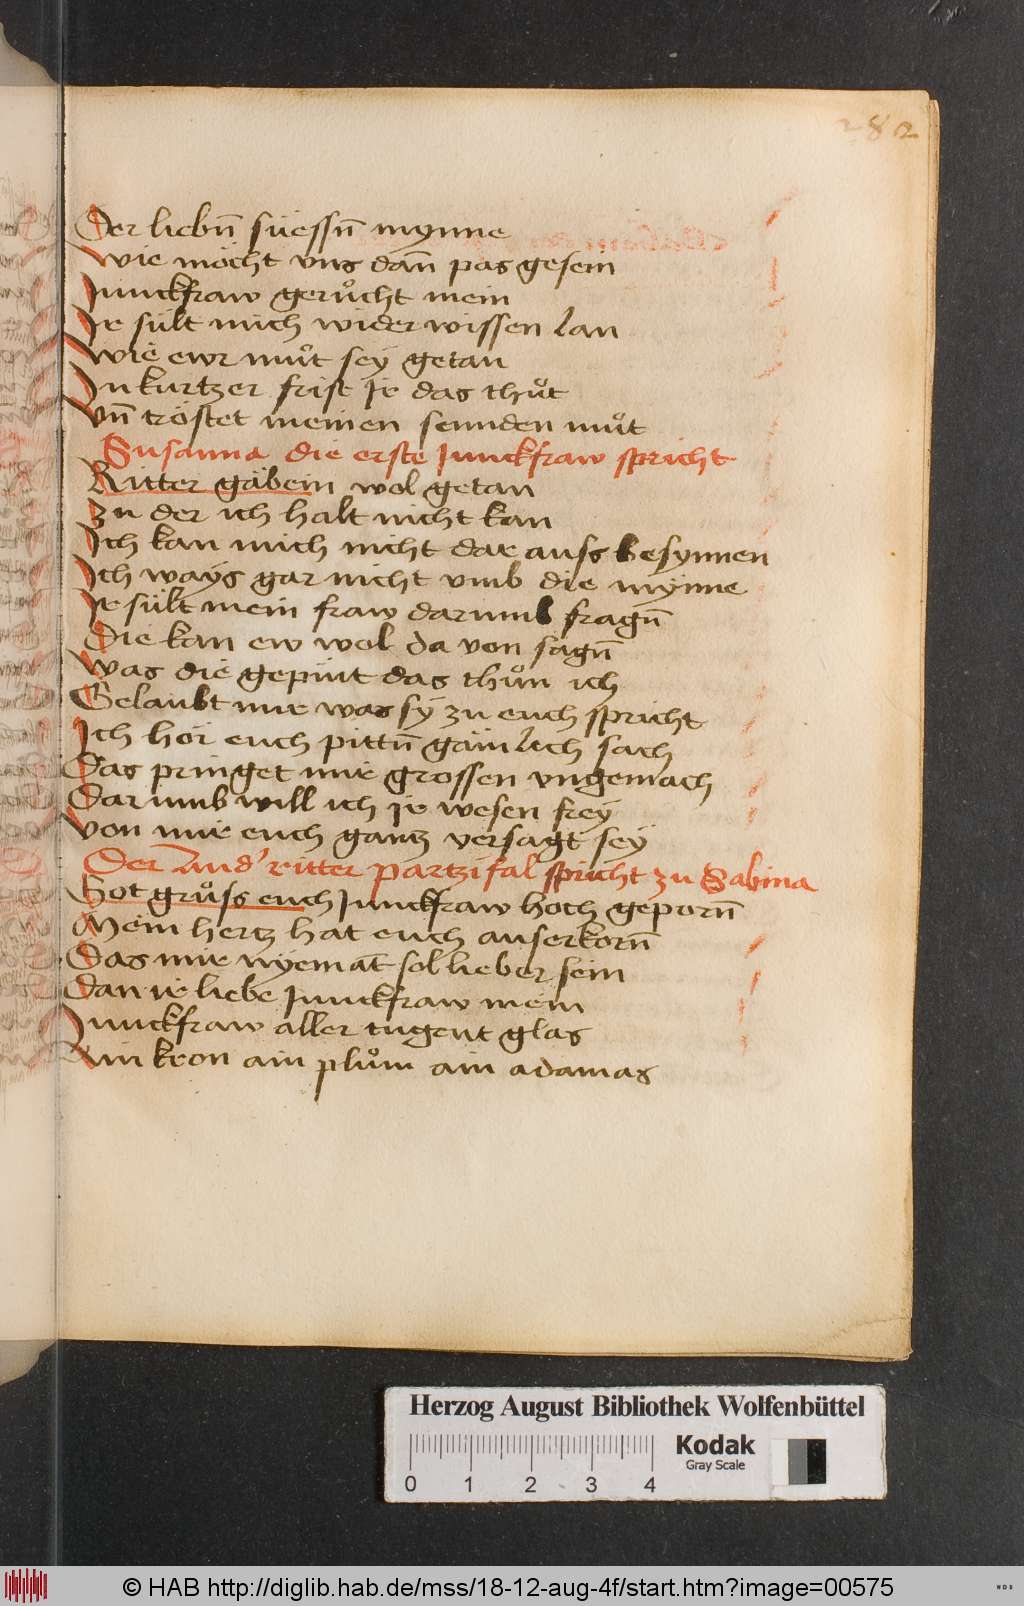 282
Der liebn̄ süessn̄ mynne
wie möcht vns dañ pas gesein
Junckfraw gerůcht mein
Ir sült mich wider wissen lan
wie ewr můt sey getan
In kurtzer frist Ir das thůt
vn̄ tröstet meinen sennden můt
Susanna die erste Junckfraw spricht
Ritter gäbein wol getan
zu der ich halt nicht kan
Ich kan mich nicht dar auss besynnen
Ich ways gar nicht vmb die mynne
Ir sült mein fraw darumb fragn̄
Die kan ew wol da von sagn̄
was die gepiut das thůn ich
Gelaubt mir was sy zu euch spricht
Ich hör euch pittn̄ gämlich sach
Das pringet mir grossen vngemach
Darumb will ich Ir wesen frey
von mir euch gantz versagt sey
Der Annd' ritter partzifal spricht zu Sabina
Got grůss euch Junckfraw hoch geporn̄
Mein hertz hat euch auserkorn̄
Das mir nyemāt sol lieber sein
Dan ir liebe Junckfraw mein
Junckfraw aller tugent glas
Ain kron ain plům ain adamas
Herzog August Bibliothek Wolfenbüttel
Kodak
Gray Scale
0 1 2 3 4
© HAB http://diglib.hab.de/mss/18-12-aug-4f/start.htm?image=00575